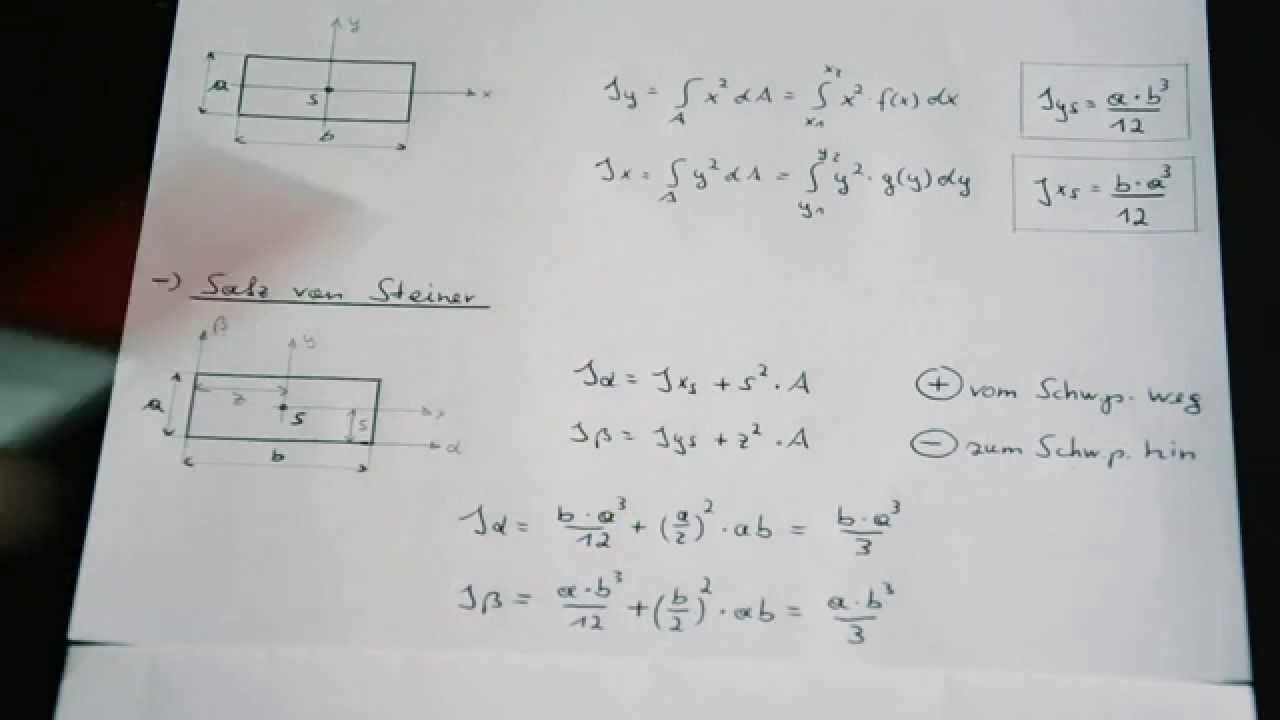 y
a
S
x
b
Jy = ∫_A x² dA = ∫_{x1}^{x2} x² · f(x) dx
Jys = a·b³/12
Jx = ∫_A y² dA = ∫_{y1}^{y2} y² · g(y) dy
Jxs = b·a³/12
-) Satz von Steiner
β
y
a
z
S
x
s
α
b
Jα = Jxs + s² · A
⊕ vom Schwp. weg
Jβ = Jys + z² · A
⊖ zum Schwp. hin
Jα = b·a³/12 + (a/2)² · ab = b·a³/3
Jβ = a·b³/12 + (b/2)² · ab = a·b³/3